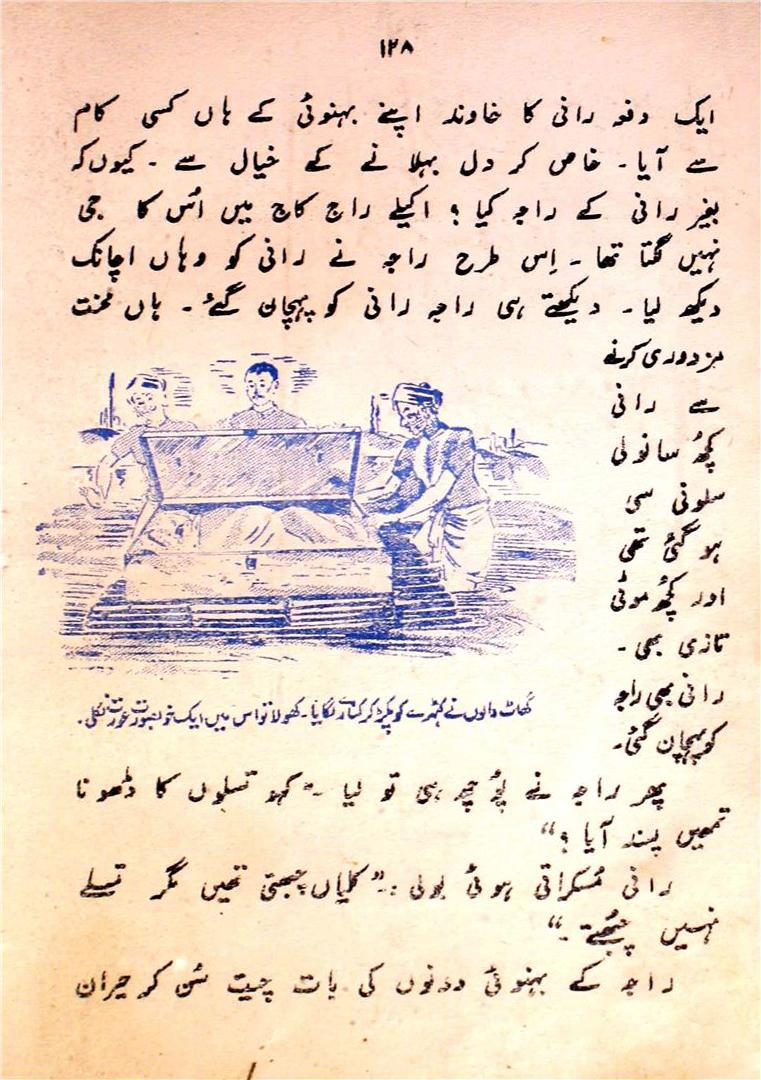 ۱۲۸
ایک دفعہ رانی کا خاوند اپنے بہنوئی کے ہاں کسی کام
سے آیا۔ خاص کر دل بہلانے کے خیال سے ۔ کیوں کہ
بغیر رانی کے راجہ کیا ؟ اکیلے راج کاج میں اُس کا جی
نہیں لگتا تھا ۔ اِس طرح راجہ نے رانی کو وہاں اچانک
دیکھ لیا ۔ دیکھتے ہی راجہ رانی کو پہچان گئے ۔ ہاں محنت
مزدوری کرنے
سے رانی
کچھُ سانولی
سلونی سی
ہو گئی تھی
اور کچھُ موٹی
تازی بھی ۔
رانی بھی راجہ
کو پہچان گئی۔
گھاٹ والوں نے کٹہرے کو پکڑ کر کنارے لگایا۔ کھولا تو اس میں ایک خوبصورت عورت نکلی۔
پھر راجہ نے پُوچھ ہی تو لیا ۔" کہو تسلوں کا ڈھونا
تمھیں پسند آیا ؟"
رانی مُسکراتی ہوئی بولی :۔" کلیاں چبھتی تھیں مگر تسلے
نہیں چبُھتے ۔"
راجہ کے بہنوئی دونوں کی بات چیت سُن کر حیران